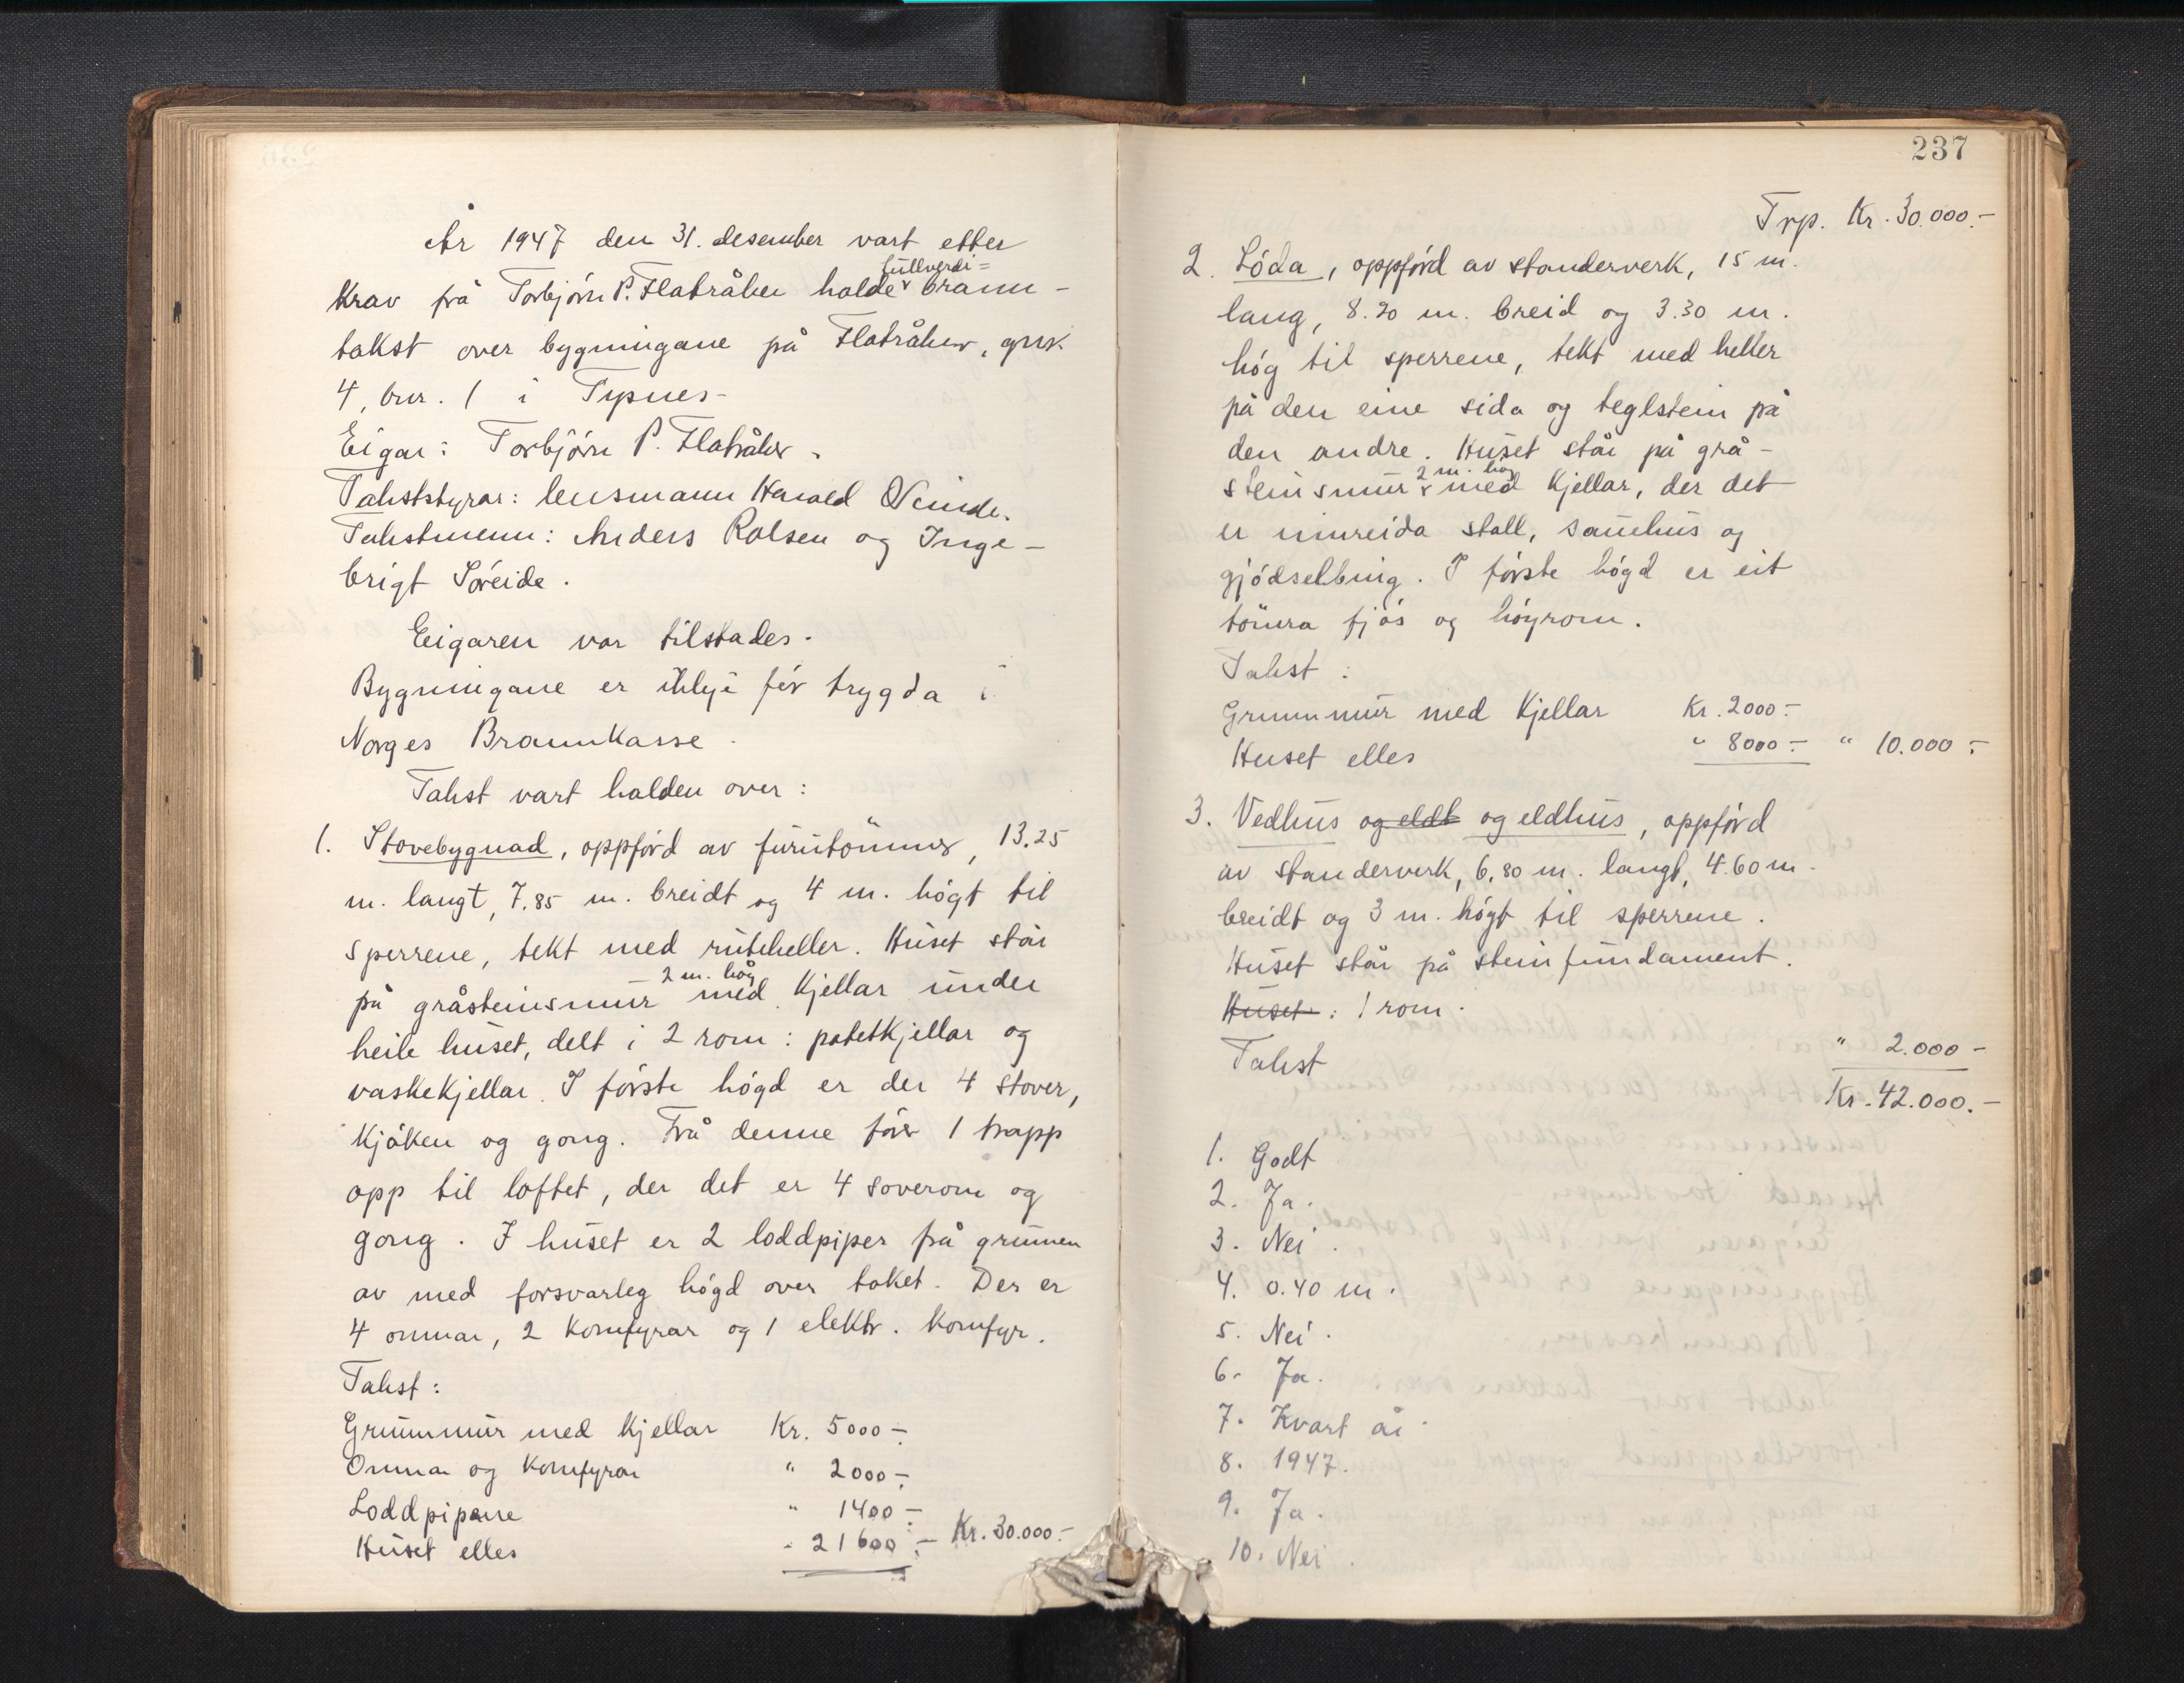 År 1947 den 31. desember vart etter
krav frå Torbjørn P. Flatråker halde fullverdi=brann-
takst over bygningane på Flatråker, gnr.
4, bnr. 1 i Tysnes.
Eigar: Torbjørn P. Flatråker.
Takststyrar: lensmann Harald Neinde.
Takstmenn: Anders Rolsen og Inge-
brigt Søreide.
Eigaren var tilstades.
Bygningane er ikkje før trygda i
Norges Brannkasse.
Takst vart halden over:
1. Stovebygnad, oppførd av furutömmer, 13.25
m. langt, 7.85 m. breidt og 4 m. högt til
sperrene, tekt med ruteheller. Huset står
på gråsteinsmur 2 m. høg med kjellar under
heile huset, delt i 2 rom: potetkjellar og
vaskekjellar. I förste högd er der 4 stover,
kjöken og gong. Frå denne förer 1 trapp
opp til loftet, der det er 4 soverom og
gong. I huset er 2 loddpiper frå grunnen
av med forsvarleg högd over taket. Der er
4 omnar, 2 komfyrar og 1 elektr. komfyr.
Takst:
Grunnmur med kjellar Kr. 5000.-
Omnar og komfyrar " 2000.-
Loddpipene " 1400.-
Huset elles " 21600.- Kr. 30.000.-
237
Trp. Kr. 30.000.-
2. Löda, oppförd av standerverk, 15 m.
lang, 8.20 m. breid og 3.30 m.
hög til sperrene, tekt med heller
på den eine sida og teglstein på
den andre. Huset står på grå-
steinsmur 2 m. høg med kjellar, der det
er innreida stall, sauehus og
gjödselbing. I förste högd er eit
tömra fjös og höyrom.
Takst:
Grunnmur med kjellar Kr. 2000.-
Huset elles " 8000.- " 10.000.-
3. Vedhus og eldt og eldhus, oppförd
av standerverk, 6.80 m. langt, 4.60 m.
breidt og 3 m. högt til sperrene.
Huset står på steinfundament.
Huset: 1 rom.
Takst " 2.000-
Kr. 42.000.-
1. Godt
2. Ja.
3. Nei.
4. 0.40 m.
5. Nei.
6. Ja.
7. Kvart år.
8. 1947.
9. Ja.
10. Nei.